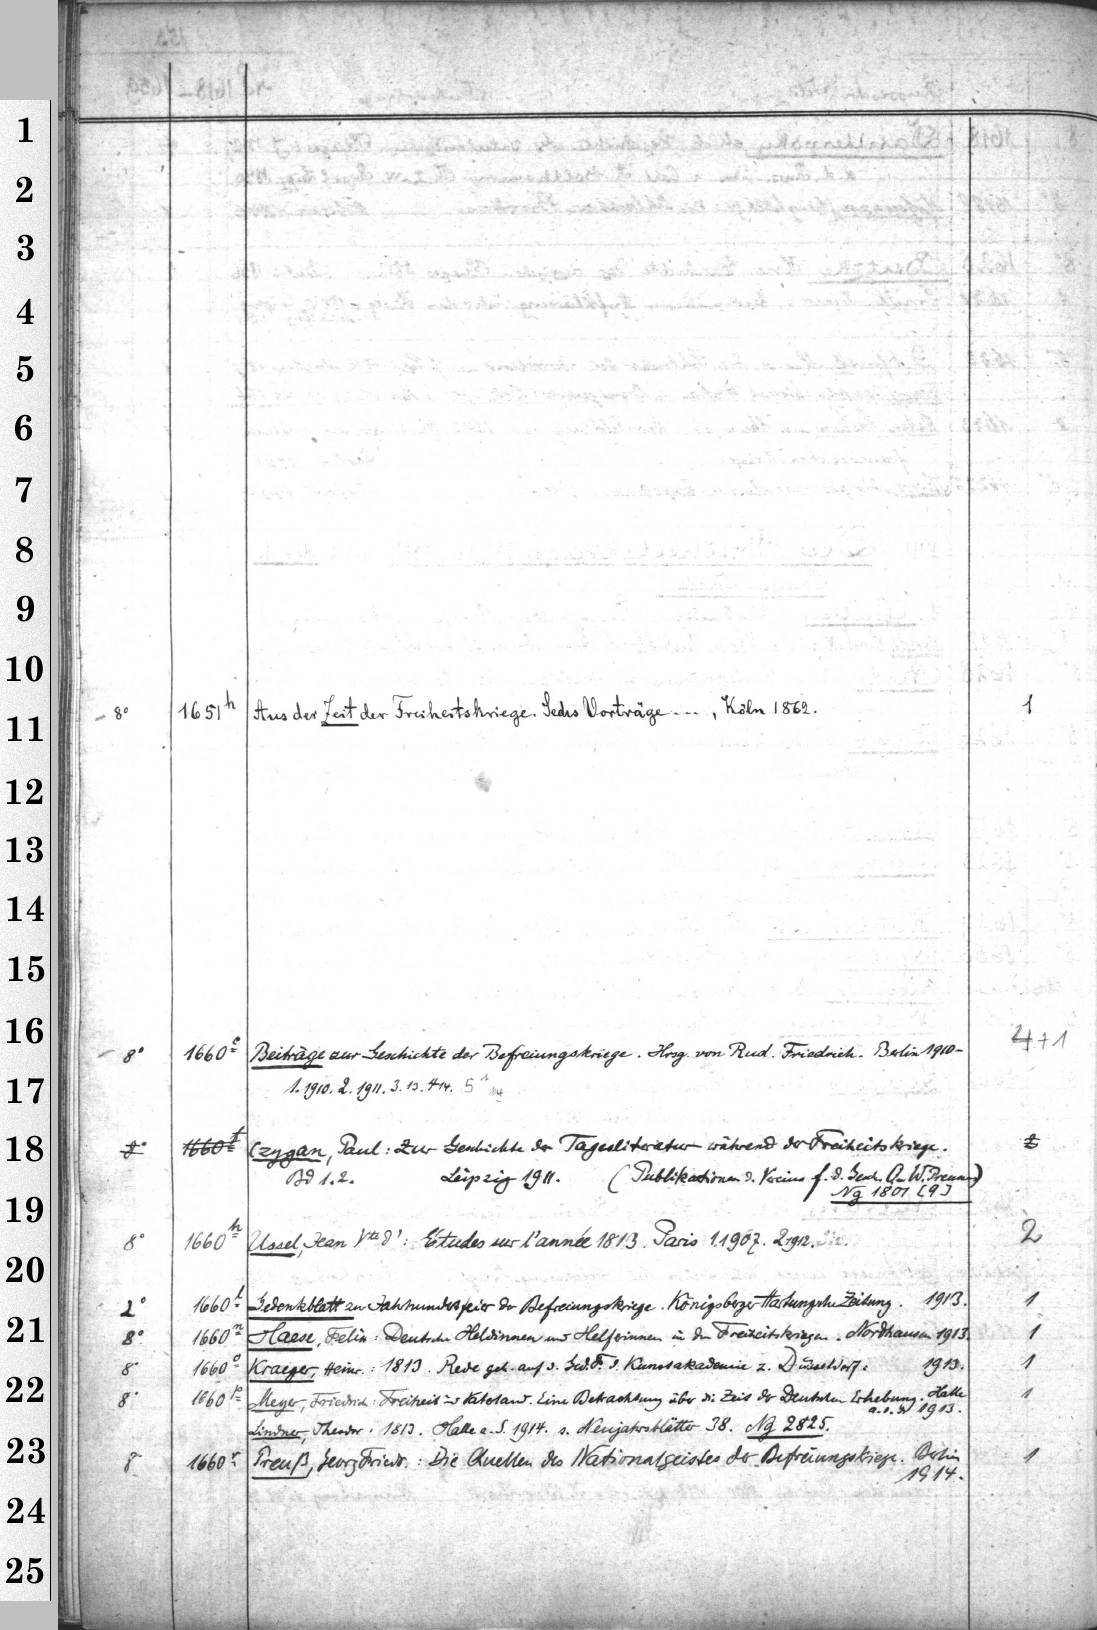 1
2
3
4
5
6
7
8
9
10
8° 1651h Aus der Zeit der Freiheitskriege. Sechs Vorträge ... , Köln 1862. 1
11
12
13
14
15
16
8° 1660e Beiträge zur Geschichte der Befreiungskriege. Hrsg. von Rud. Friedrich. Berlin 1910- 4+1
17 1. 1910. 2. 1911. 3. 13. 4 14. 5
18 8° 1660f Czygan, Paul: Zur Geschichte der Tagesliteratur während der Freiheitskriege. 2
Bd 1.2. Leipzig 1911. (Publikationen d. Vereins f. d. Gesch. O. u. W. Preussen)
19 Ng 1801 [9]
8° 1660h Ussel, Jean Vte d': Etudes sur l'année 1813. Paris 1.1907. 2.1912. 2
20
2° 1660l Gedenkblatt zur Jahrhundertfeier der Befreiungskriege. Königsberger Hartungsche Zeitung. 1913. 1
21 8° 1660n Haese, Felix: Deutsche Heldinnen und Helferinnen in den Freiheitskriegen. Nordhausen 1913. 1
8° 1660o Kraeger, Heinr.: 1813. Rede geh. auf d. d. Kunstakademie z. Düsseldorf. 1913. 1
22 8° 1660p Meyer, Friedrich: Freiheit u Vaterland. Eine Betrachtung über die Zeit der Deutschen Erhebung. Halle 1
a. d. S 1913.
Lindner, Theodor. 1813. Halle a. S. 1914. s. Neujahrsblätter 38. Ng 2825.
23 8° 1660r Preuß, Georg Friedr.: Die Quellen des Nationalgeistes der Befreiungskriege. Berlin 1
1914.
24
25